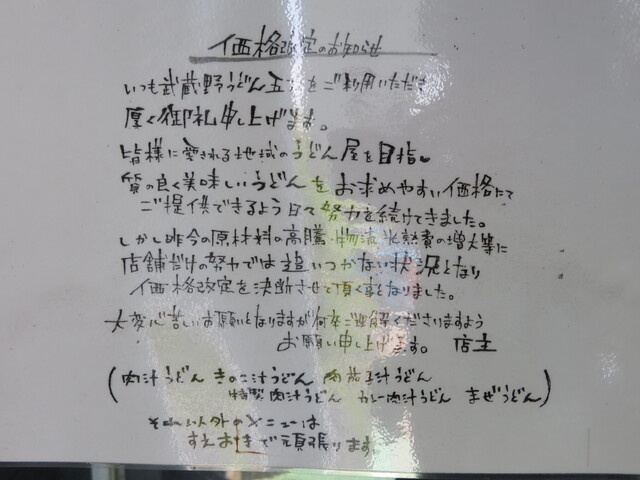 価格改定のお知らせ
いつも武蔵野うどん五 をご利用いただき
厚く御礼申し上げます。
皆様に愛される地域のうどん屋を目指し
質の良く美味しいうどんをお求めやすい価格にて
ご提供できるよう日々努力を続けてきました。
しかし昨今の原材料の高騰・物流光熱費の増大等に
店舗だけの努力では追いつかない状況となり
価格改定を決断させて頂く事となりました。
大変心苦しいお願いとなりますが何卒ご理解くださいますよう
お願い申し上げます。 店主
(肉汁うどん きのこ汁うどん 肉茄子汁うどん
特製肉汁うどん カレー肉汁うどん まぜうどん)
それ以外のメニューは
すえおきで頑張ります